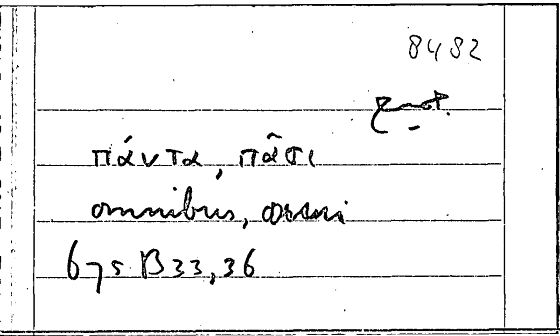 8482
πάντα, πᾶσι
omnibus, omni
675 B33,36